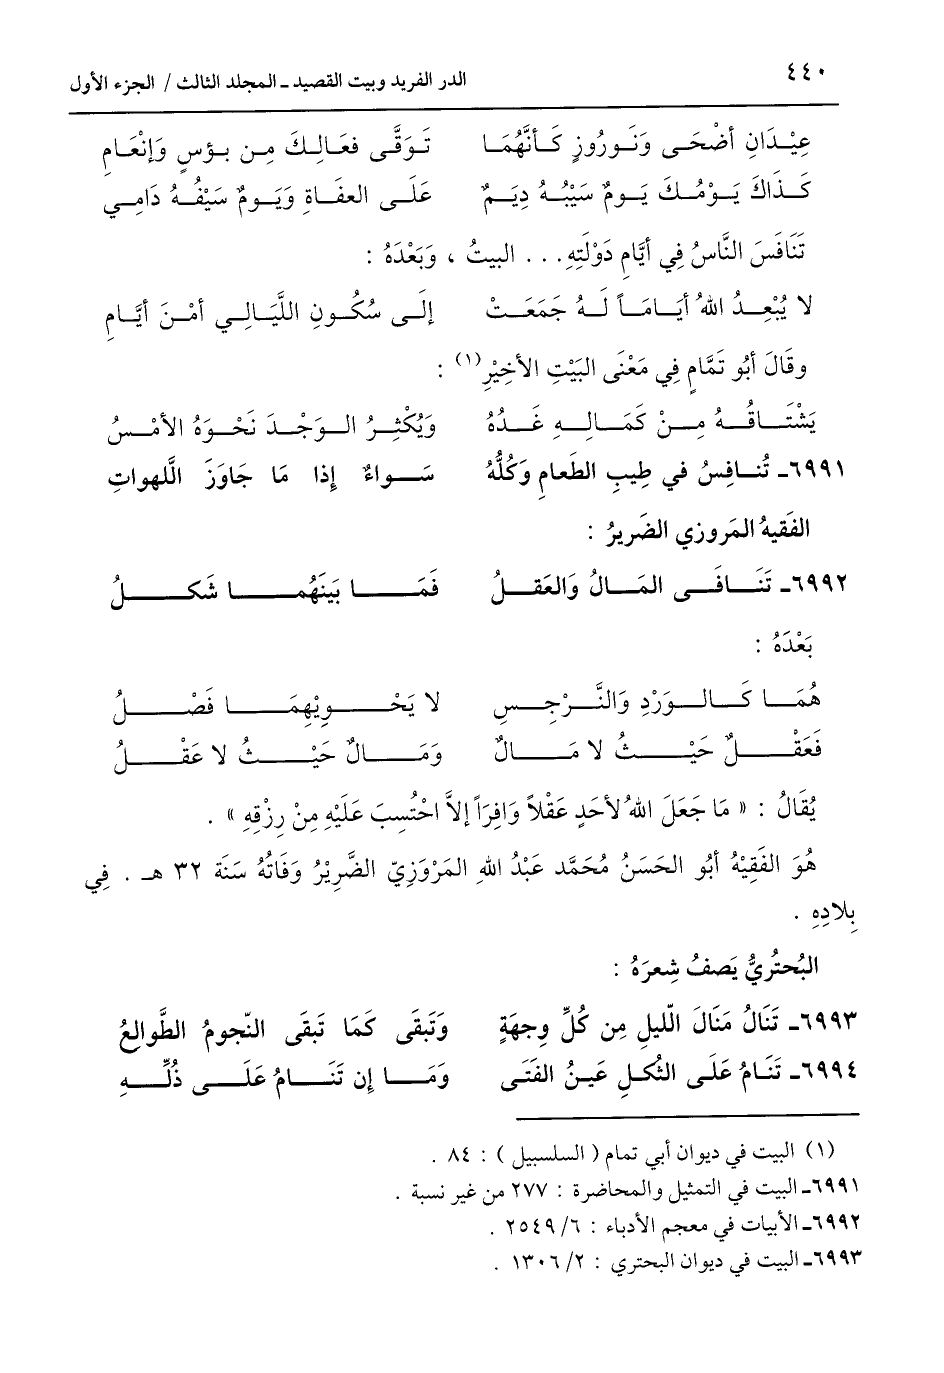 ٤٤٠
الدر الفريد وبيت القصيد ـ المجلد الثالث / الجزء الأول
عِيْدَانِ أضْحَى وَنَورُوزٍ كَأنَّهُمَا تَوَقَّى فعَالِكَ مِن بؤسٍ وَإنْعَامِ
كَذَاكَ يَوْمُكَ يَومٌ سَيْبُهُ دِيَمٌ عَلَى العفَاةِ وَيَومٌ سَيْفُهُ دَامِي
تَنَافَسَ النَّاسُ فِي أيَّامِ دَوْلَتِهِ . . . البيتُ ، وَبَعْدَهُ :
لا يُبْعِدُ اللهُ أيَامَاً لَهُ جَمَعَتْ إلَى سُكُونِ اللَّيَالِي أمْنَ أيَّامِ
وقَالَ أبُو تَمَّامٍ فِي مَعْنَى البَيْتِ الأخِيْرِ(١) :
يَشْتَاقُهُ مِنْ كَمَالِهِ غَدُهُ وَيُكْثِرُ الوَجْدَ نَحْوَهُ الأمْسُ
٦٩٩١ـ تُنافِسُ في طِيبِ الطَعامِ وَكُلُّهُ سَواءٌ إِذا مَا جَاوَزَ اللَّهواتِ
الفَقيهُ المَروزي الضَريرُ :
٦٩٩٢ـ تَنَافَى المَالُ وَالعَقلُ فَمَا بَينَهُما شَكلُ
بَعْدَهُ :
هُمَا كَالوَرْدِ وَالنَّرْجِسِ لا يَحْوِيْهِمَا فَصْلُ
فَعَقْلٌ حَيْثُ لا مَالٌ وَمَالٌ حَيْثُ لا عَقْلُ
يُقَالُ : « مَا جَعَلَ اللهُ لأحَدٍ عَقْلاً وَافِرَاً إلاَّ احْتُسِبَ عَلَيْهِ مِنْ رِزْقِهِ » .
هُوَ الفَقِيْهُ أبُو الحَسَنُ مُحَمَّد عَبْدُ اللهِ المَرْوَزِيّ الضَّرِيْرُ وَفَاتُهُ سَنَة ٣٢ هـ . فِي
بِلادِهِ .
البُحتُريُّ يَصفُ شِعرَهُ :
٦٩٩٣ـ تَنَالُ مَنَالَ اللّيلِ مِن كُلِّ وِجهَةٍ وَتَبقَى كَمَا تَبقَى النّجومُ الطَّوالِعُ
٦٩٩٤ـ تَنَامُ عَلَى الثكلِ عَينُ الفَتَى وَمَا إن تَنَامُ عَلَى ذُلِّهِ
(١) البيت في ديوان أبي تمام ( السلسبيل ) : ٨٤ .
٦٩٩١ـ البيت في التمثيل والمحاضرة : ٢٧٧ من غير نسبة .
٦٩٩٢ـ الأبيات في معجم الأدباء : ٦/ ٢٥٤٩ .
٦٩٩٣ـ البيت في ديوان البحتري : ٢/ ١٣٠٦ .